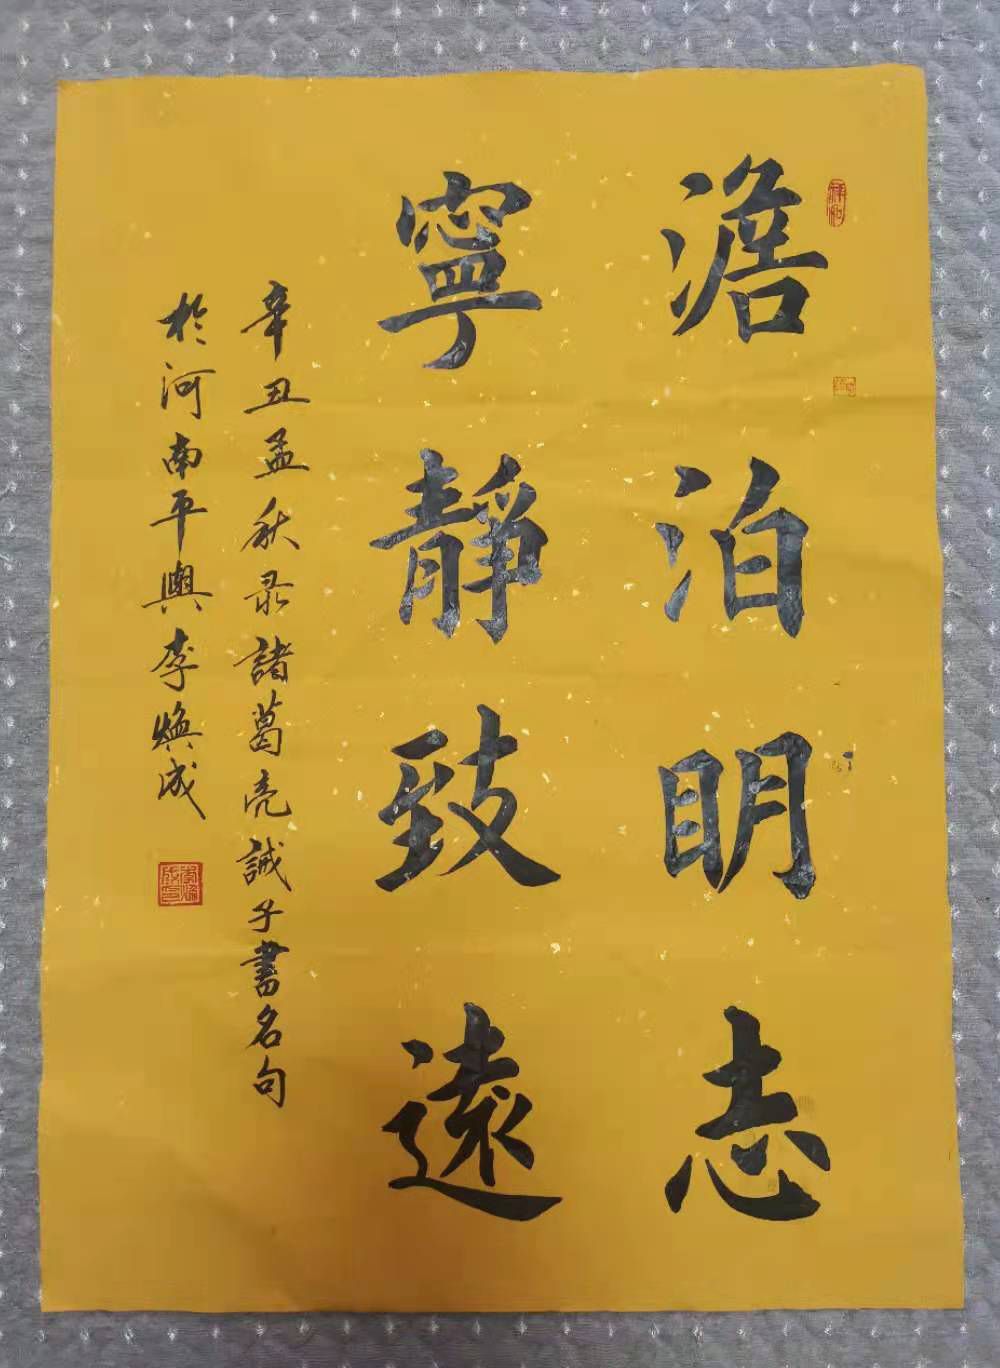 澹泊明志
寧靜致遠
辛丑孟秋录諸葛亮誡子書名句
於河南平輿李煥成